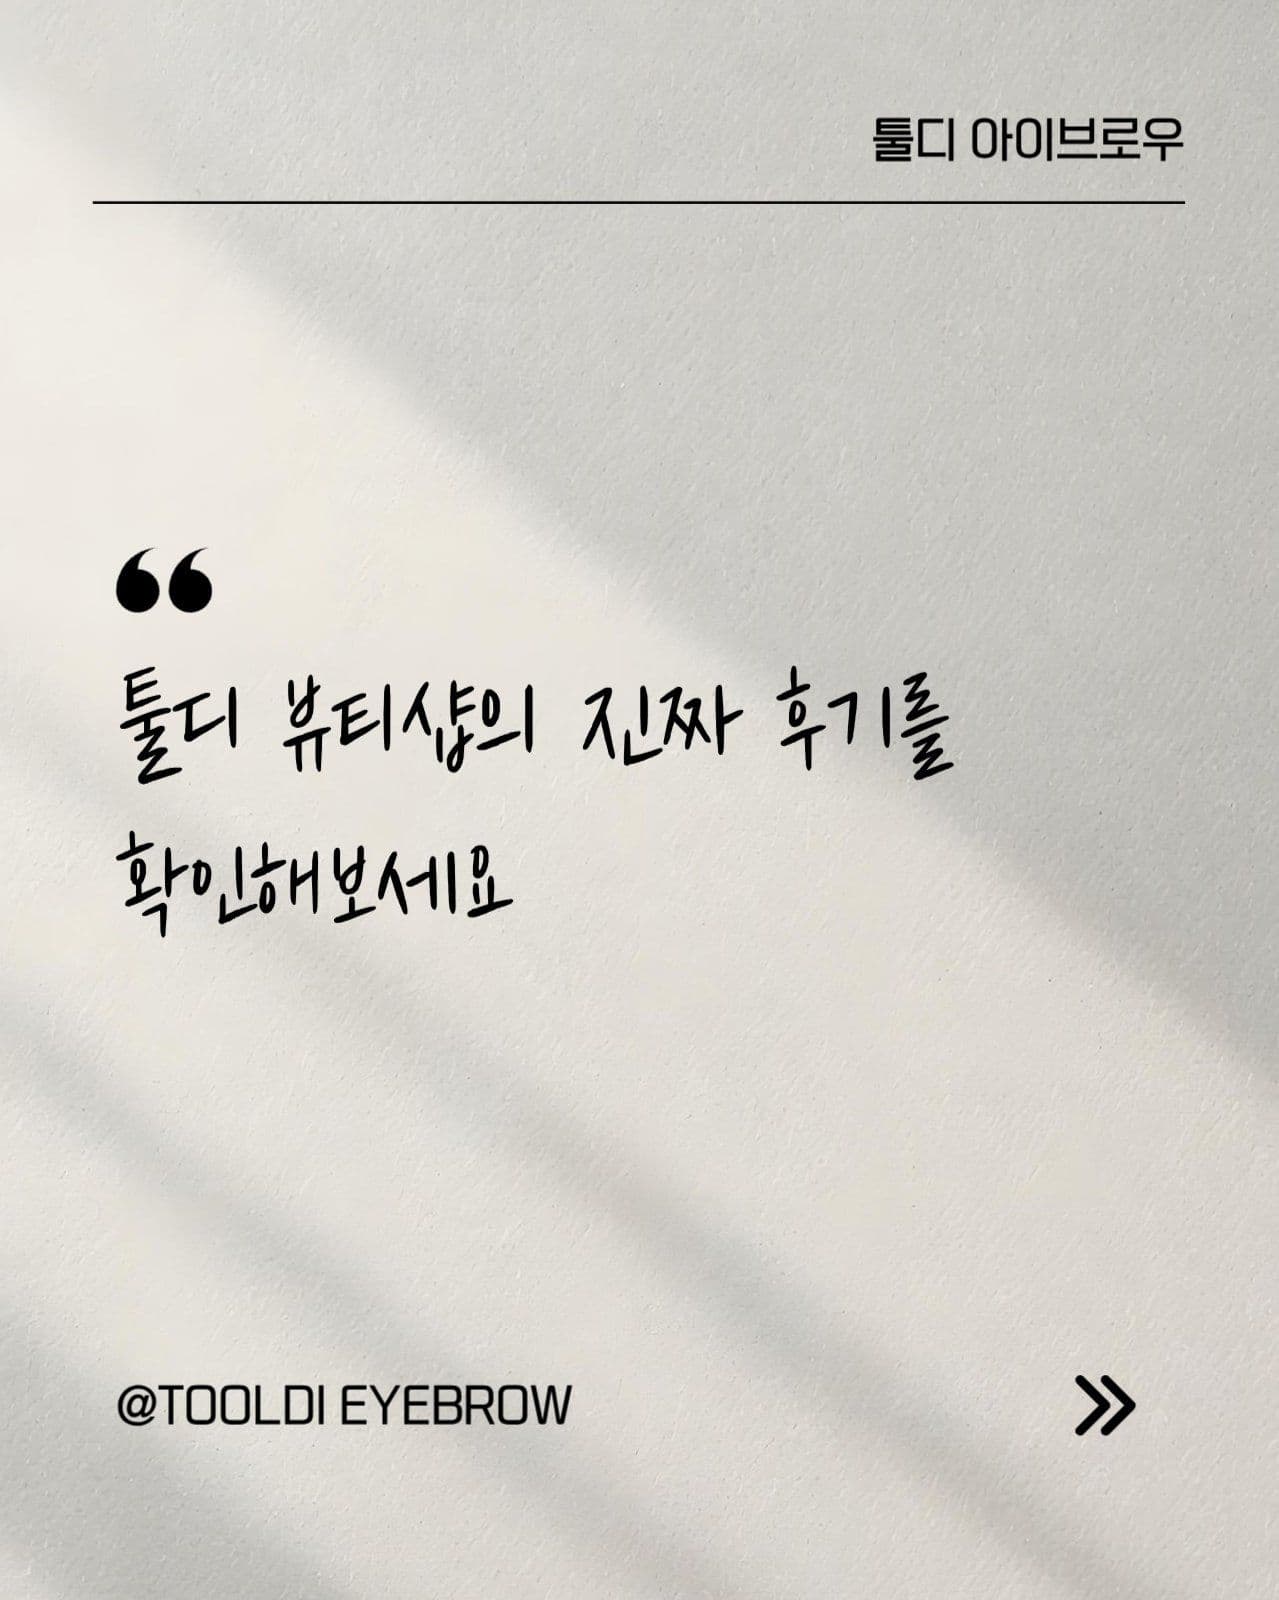 툴디 아이브로우
“
툴디 뷰티샵의 진짜 후기를
확인해보세요
@TOOLDI EYEBROW
»